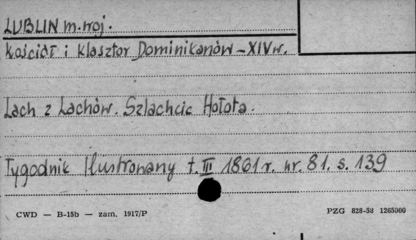 LUBLIN m. woj.
Kościół i klasztor Dominikanów – XIV w.
Lach z Lachów. Szlachcic Hołota.
Tygodnik Ilustrowany t. III 1861 r. nr. 81. s. 139
CWD — B-15b — zam. 1917/P
PZG 828-5d 1265000